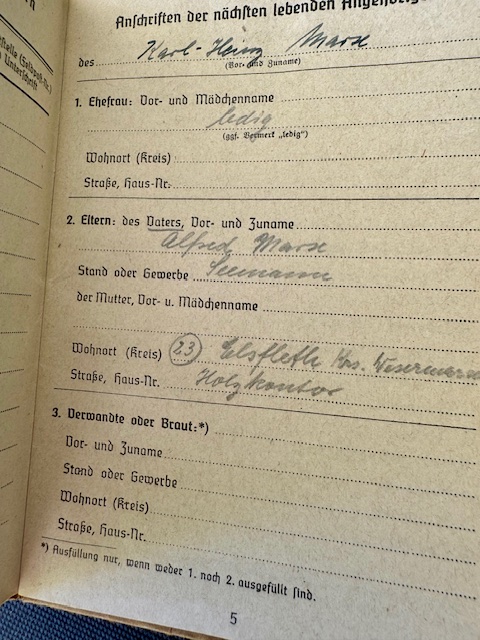 Anschriften der nächsten lebenden
des Karl-Heinz Marx
(Vor- und Zuname)
1. Ehefrau: Vor- und Mädchenname
ledig
(ggf. Vermerk „ledig")
Wohnort (Kreis)
Straße, Haus-Nr.
2. Eltern: des Vaters, Vor- und Zuname
Alfred Marx
Stand oder Gewerbe Seemann
der Mutter, Vor- u. Mädchenname
Wohnort (Kreis) (23) Elsfleth Krs. Wesermarsch
Straße, Haus-Nr. Holzkontor
3. Verwandte oder Braut:*)
Vor- und Zuname
Stand oder Gewerbe
Wohnort (Kreis)
Straße, Haus-Nr.
*) Ausfüllung nur, wenn weder 1. noch 2. ausgefüllt sind.
5
Unterschrift